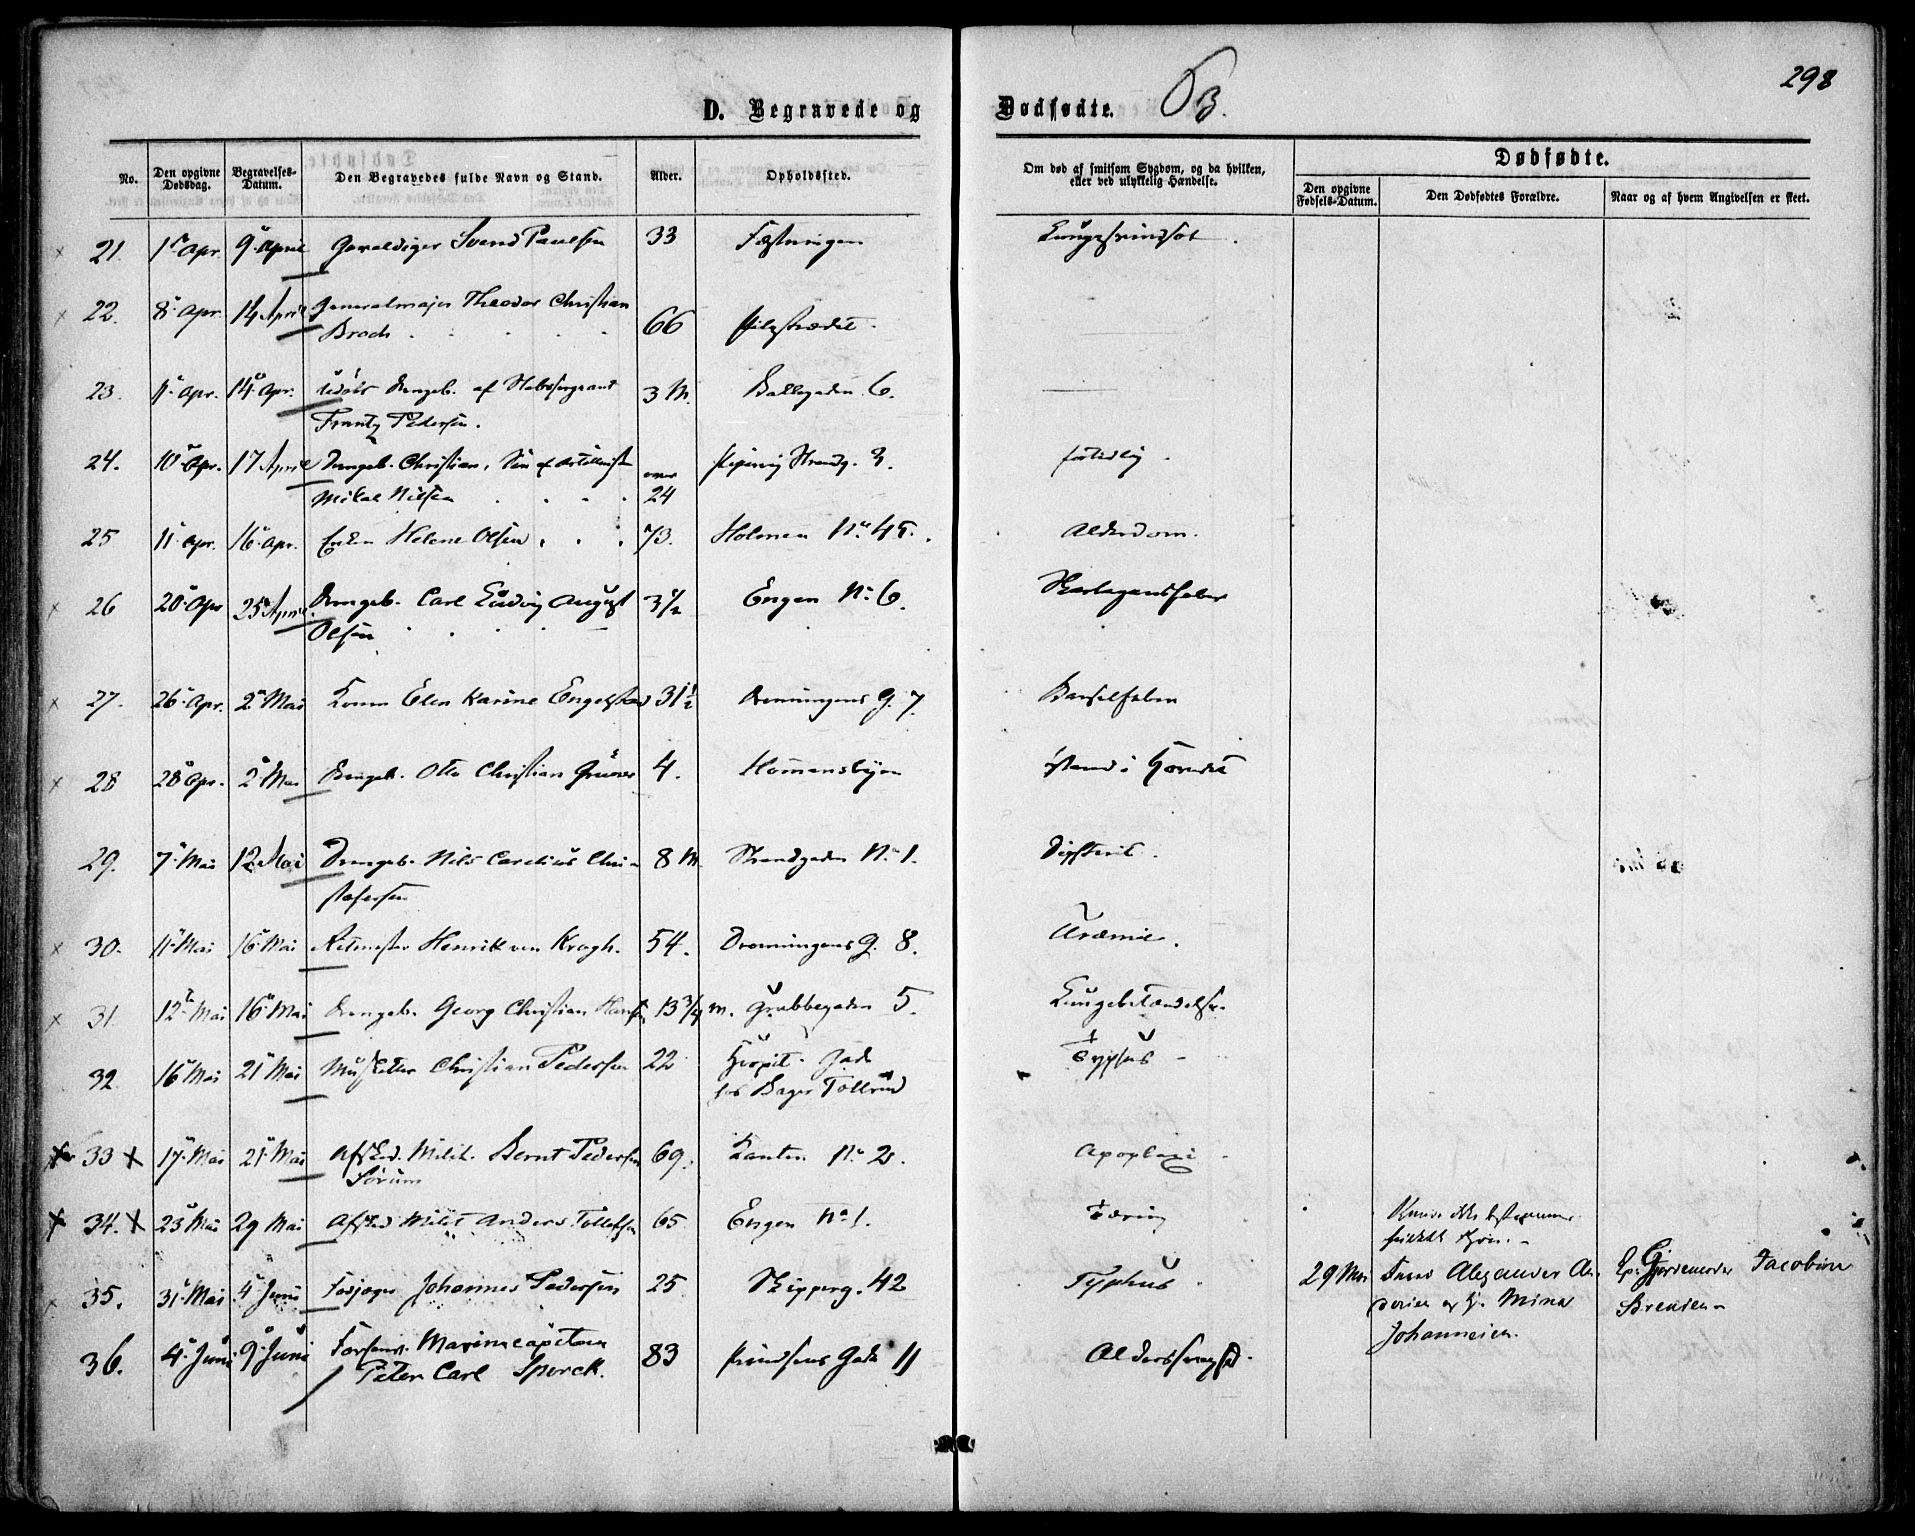 298
D. Begravede og Dødfødte. B.
No. Den opgivne Dødsdag. Begravelses-Datum. Den Begravedes fulde Navn og Stand. Alder. Opholdssted. Om død af smitsom Sygdom, og da hvilken, eller ved ulykkelig Hændelse. Dødfødte.
Den opgivne Fødsels-Datum. Den Dødfødtes Forældre. Naar og af hvem Angivelsen er skeet.
21. 1 Apr. 9 April Gevaldiger Svend Paulsen 33 Fæstningen Lungesvindsot.
22. 8 Apr. 14 April Generalmajor Theodor Christian
Broch 66 Pilestrædet.
23. 11 Apr. 14 Apr. udøbt Drengeb. af Stabssergeant 3 M. 6.
Frantz Pedersen.
24. 10 Apr. 17 April Drengeb. Christian, Søn af Artillerist Pipervig Strandg. 3. fortidlig.
Mikal Nilsen 24
25 11 Apr. 16 Apr. Enken Helene Olsen 73. Holmen No 45. Alderdom.
26 20 Apr 25 April Drengeb. Carl Ludvig August 3 1/2 Engen No 6. Skarlagensfeber
Olsen
27. 26 Apr. 2 Mai Konen Elen Karine Engelstad 31 1/2 Dronningens G. 7. Barselfeber
28 28 Apr. 2 Mai Drengeb. Otto Christian 4. Homansbyen Vand i Hovedet
29. 7 Mai 12 Mai Drengeb. Nils Carelius Chri- 8 M. Strandgaden No 1. Difterit.
stofersen
30. 11 Mai 16 Mai Ritmester Henrik von Krogh. 54. Dronningens G. 8. Uræmie.
31. 12 Mai 16 Mai Drengeb. Georg Christian Hansen 13 3/4 m. Grubbegaden 5. Lungebetændelse.
32. 16 Mai 21 Mai Musketer Christian Pedersen 22 Hospit. Gade Typhus
hos Bager Tollrud
33 17 Mai 21 Mai Afsked. Milit. Bernt Pedersen 69. Kanten No 2. Apoplexi
Sørum
34. 23 Mai 29 Mai Afsked Milit Anders Tollefsen 65 Engen No 1. Tæring
35. 31 Mai 4 Juni Johannes Pedersen 25 Skipperg. 42 Typhus 29 Mai Alexander Gjordemoder Jacobine
og H. Mina
Johannesen.
36. 4 Juni 9 Juni Marinecapitain
Peter Carl Sporck. 83 Prindsens Gade 11